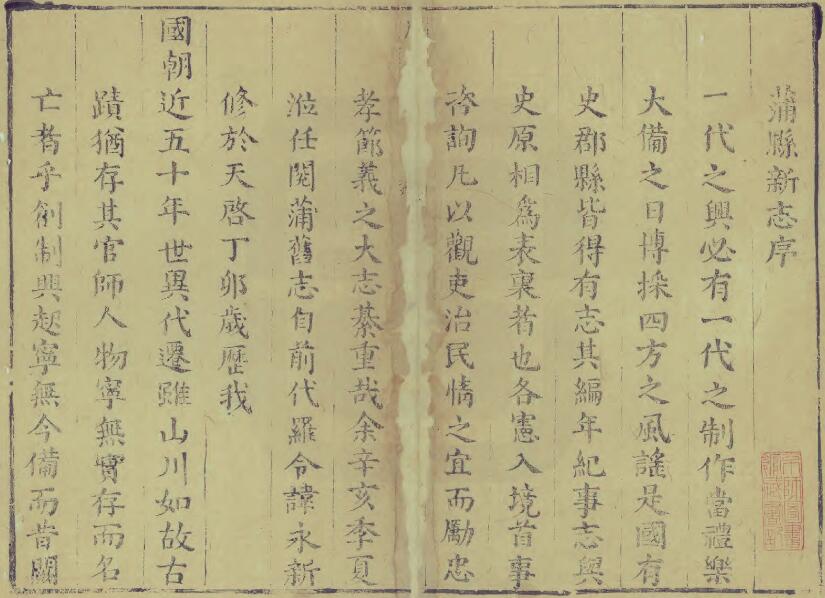 蒲縣新志序
一代之興必有一代之制作當禮樂
大備之日博採四方之風謠是國有
史郡縣皆得有志其編年紀事志與
史原相爲表裏者也各憲入境首事
咨詢凡以觀吏治民情之宜而勵忠
孝節義之大志綦重哉余辛亥季夏
涖任閱蒲舊志自前代羅令諱永新
修於天啓丁卯歲歷我
國朝近五十年世異代遷雖山川如故古
蹟猶存其官師人物寧無實存而名
亡者乎創制興起寧無今備而昔闕